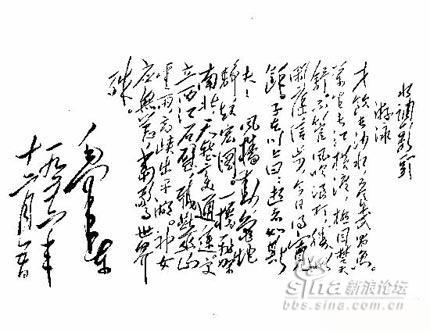 水调歌头
游泳
才饮长沙水，又食武昌鱼。
万里长江横渡，极目楚天
舒。不管风吹浪打，胜似
闲庭信步，今日得宽
馀。子在川上曰：逝者如斯
夫！风樯动，龟蛇
静，起宏图。一桥飞架
南北，天堑变通途。更
立西江石壁，截断巫山
云雨，高峡出平湖。神女
应无恙，当惊世界
殊。
毛泽东
一九五六年
十二月五日
sina 新浪论坛
bbs.sina.com.cn